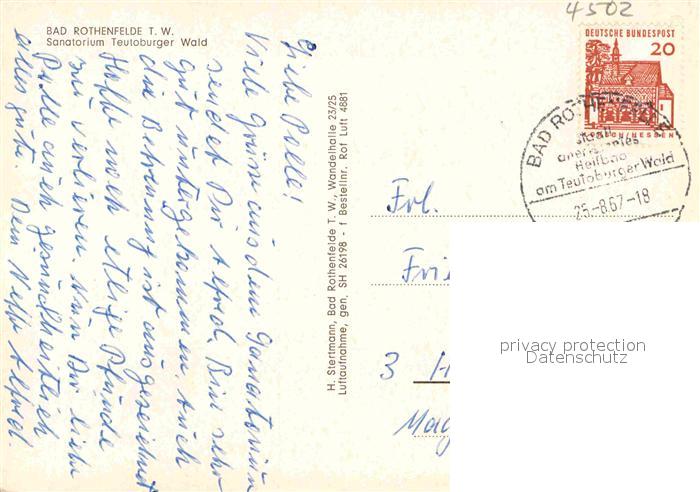 4502
BAD ROTHENFELDE T. W.
Sanatorium Teutoburger Wald
DEUTSCHE BUNDESPOST
20
LORSCH/HESSEN
BAD ROTHENFELDE
staatl
anerkanntes
Heilbad
am Teutoburger Wald
25-8.67-18
Liebe Pelle!
Viele Grüsse aus dem Sanatorium
sendet Dir Alfred. Bin sehr
gut untergekommen, auch
die Betreuung ist ausgezeichnet
Hoffe noch etliche Pfunde
zu verlieren. Nun Dir liebe
Pelle auch gesundheitlich
alles gute. Dein Neffe Alfred.
H. Stertmann, Bad Rothenfelde T. W., Wandelhalle 23/25
Luftaufnahme, gen, SH 26198 - f Bestellnr, Rof Luft 4881
Frl.
Frie
3 H
Mag
privacy protection
Datenschutz